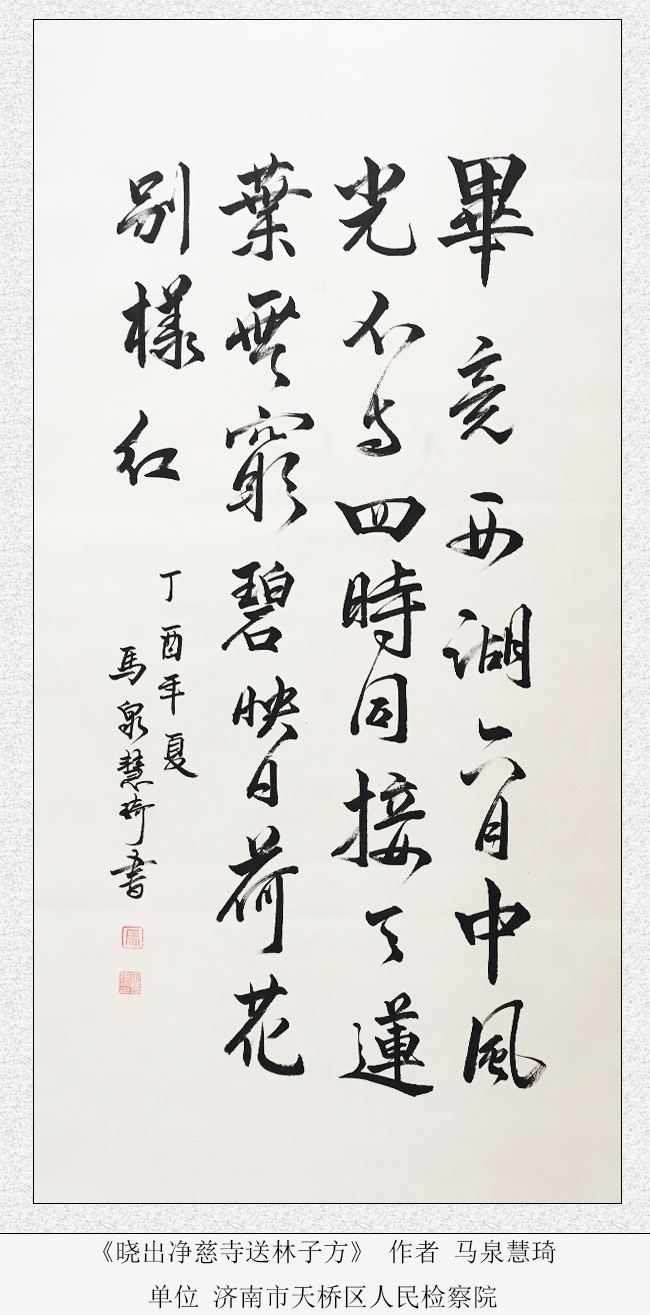 畢竟西湖六月中風
光不与四時同接天蓮
葉無窮碧映日荷花
别樣紅
丁酉年夏
馬泉慧琦書
馬
《晓出净慈寺送林子方》 作者 马泉慧琦
单位 济南市天桥区人民检察院